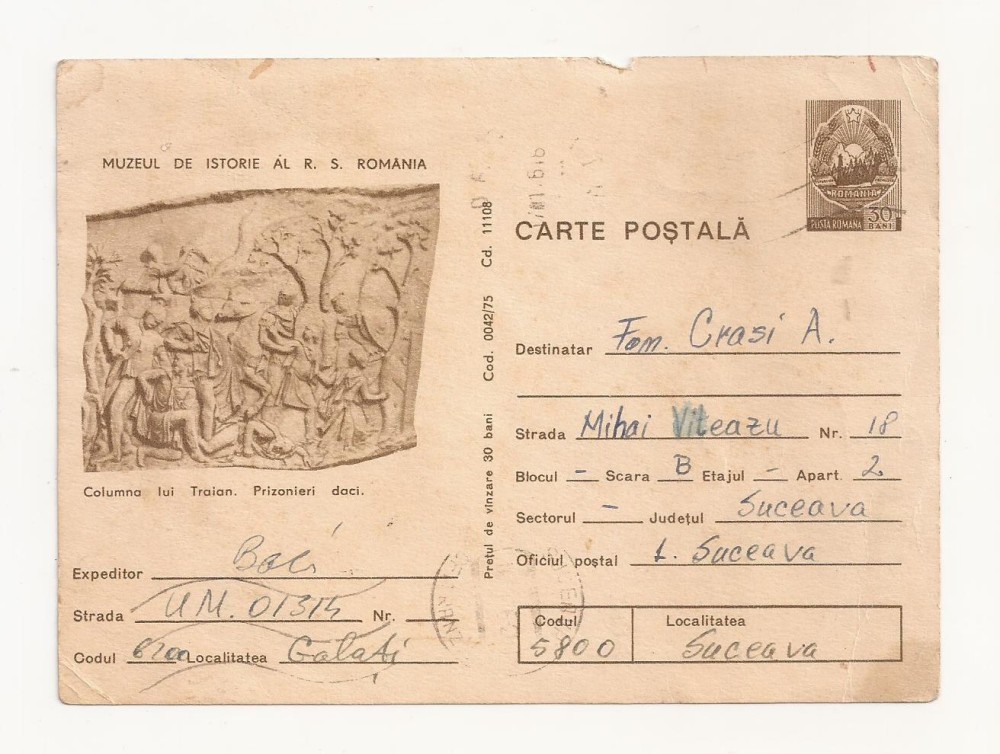 MUZEUL DE ISTORIE AL R. S. ROMÂNIA
Columna lui Traian. Prizonieri daci.
Expeditor
Strada U.M. 01315 Nr.
Codul 6200 Localitatea Galați
Prețul de vînzare 30 bani Cod. 0042/75 Cd. 11108
ROMÂNIA
POSTA ROMANA 30 BANI
CARTE POȘTALĂ
Destinatar Fam. Crasi A.
Strada Mihai Viteazu Nr. 18
Blocul - Scara B Etajul - Apart. 2
Sectorul - Județul Suceava
Oficiul poștal 1. Suceava
Codul Localitatea
5800 Suceava